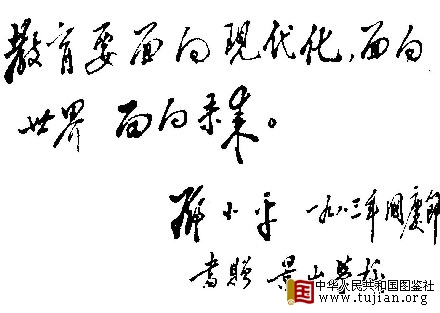 教育要面向現代化，面向
世界 面向未来。
邓小平 一九八三年國慶節
書贈 景山学校
中华人民共和国图鉴社
www.tujian.org